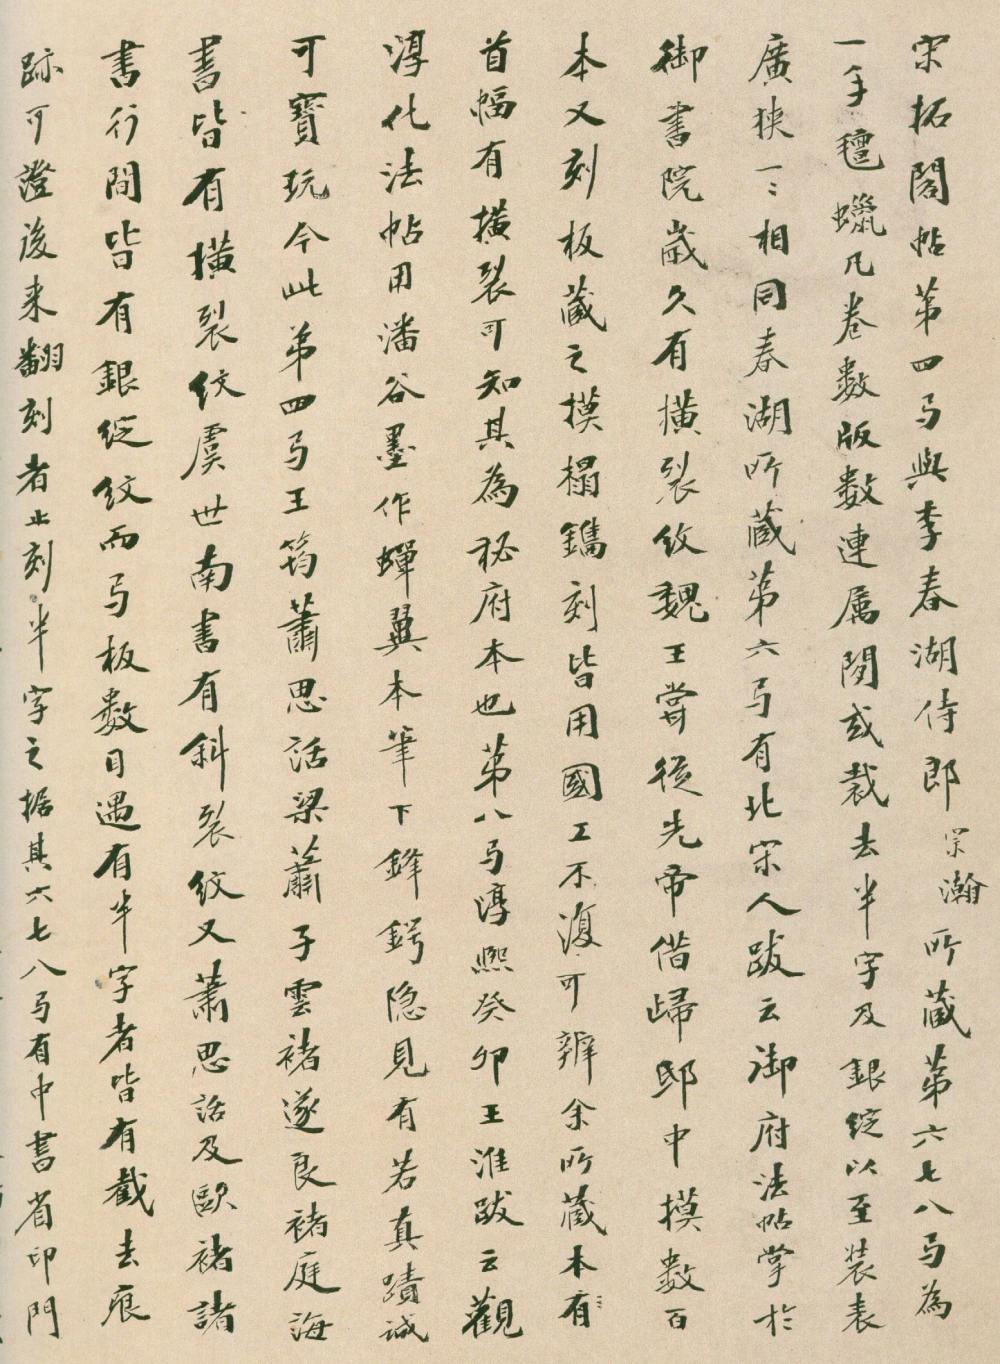 宋拓閣帖第四弓與李春湖侍郎宗瀚所藏第六七八弓為
一手氊蠟凡卷數版數連属閒或裁去半字及銀錠以至装表
廣狹一〻相同春湖所藏第六弓有北宋人跋云御府法帖掌於
御書院歲久有横裂紋魏王嘗從先帝借歸邸中摸數百
本又刻板藏之摸榻鐫刻皆用國工不復可辨余所藏本有
首幅有橫裂可知其為秘府本也第八弓淳熙癸卯王淮跋云觀
淳化法帖用潘谷墨作蟬翼本筆下鋒鍔隐見有若真蹟誠
可寶玩今此第四弓王筠蕭思話梁蕭子雲褚遂良褚庭誨
書皆有横裂紋虞世南書有斜裂紋又蕭思話及歐褚諸
書行間皆有銀錠紋而弓板數目遇有半字者皆有截去痕
跡可證後来翻刻者止刻半字之据其六七八弓有中書省印門